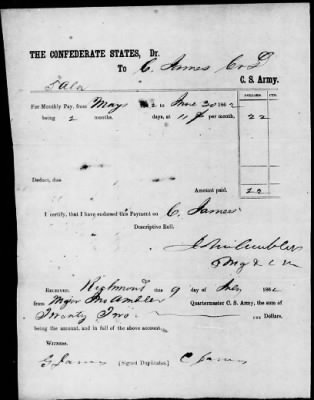 THE CONFEDERATE STATES, Dr.
To C. James Co D
C. S. Army.
DOLLARS. CTS.
For Monthly Pay, from May 2 to June 30 1862
being 2 months. days, at 11 $ per month, 22
Deduct, due
Amount paid. 22
I certify, that I have endorsed this Payment on C. James
Descriptive Roll.
Jno Ambler
Maj & Q M
RECEIVED, Richmond this 9 day of July 1862
from Major Jno Ambler Quartermaster C. S. Army, the sum of
Twenty Two 00/100 Dollars.
being the amount, and in full of the above account.
[Signed Duplicates.] C James